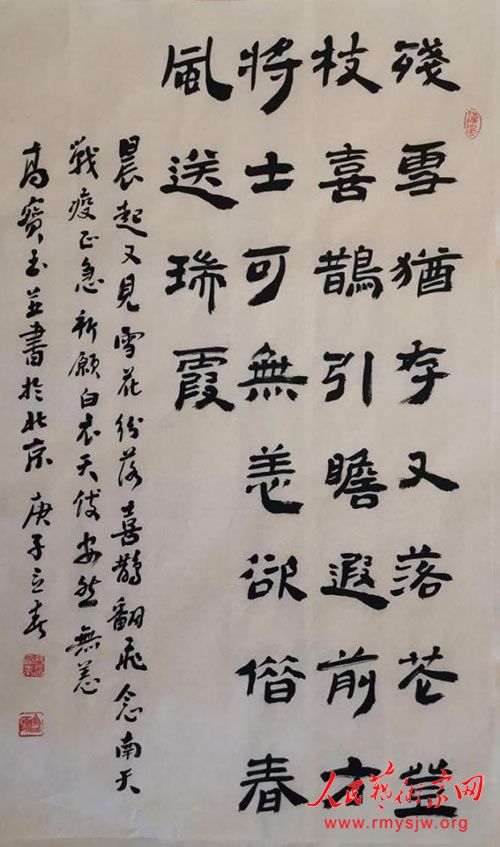 殘雪猶存又落花登
枝喜鵲引瞻遐前方
將士可無恙欲偕春
風送瑞霞
晨起又見雪花纷落喜鵲翻飛念南天
戰疫正急祈願白衣天使安然無恙
高寶玉並書於北京 庚子立春
人民藝術家网
www.rmysjw.org